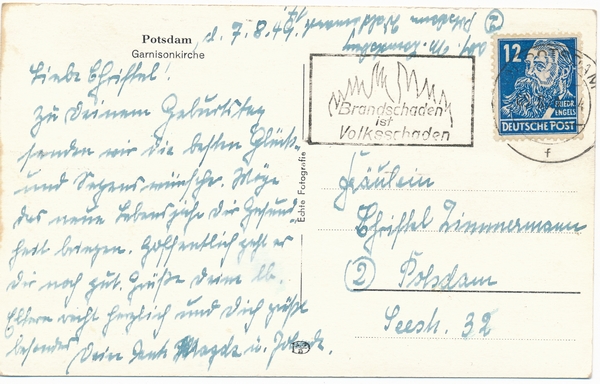 Potsdam
Garnisonkirche
d. 7.8.49.
Liebe Christel!
Zu Deinem Geburtstag
senden wir die besten Glück-
und Segenswünsche. Möge
das neue Lebensjahr Dir Gesund-
heit bringen. Hoffentlich geht es
Dir noch gut. Grüße Deine lb.
Eltern recht herzlich und Dich grüßt
besonders Dein Magda u.
Brandschaden
ist
Volksschaden
12
FRIEDR.
ENGELS
DEUTSCHE POST
f
Echte Fotografie
Fräulein
Christel Zimmermann
② Potsdam
Seestr. 32